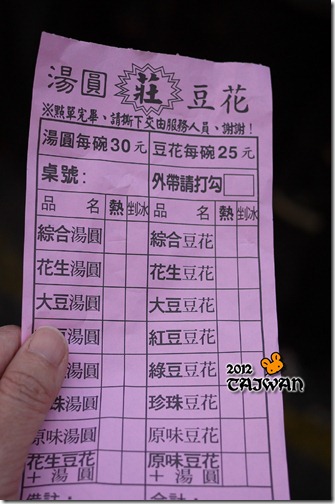 湯圓 莊 豆花
※點單完畢、請撕下交由服務人員、謝謝！
湯圓每碗30元 豆花每碗25元
桌號： 外帶請打勾
品 名 熱 剉冰 品 名 熱 剉冰
綜合湯圓 綜合豆花
花生湯圓 花生豆花
大豆湯圓 大豆豆花
豆湯圓 紅豆豆花
湯圓 綠豆豆花
珠湯圓 珍珠豆花
原味湯圓 原味豆花
花生豆花 原味豆花
+ 湯圓 + 湯圓
備註： 合計：
2012
TAIWAN